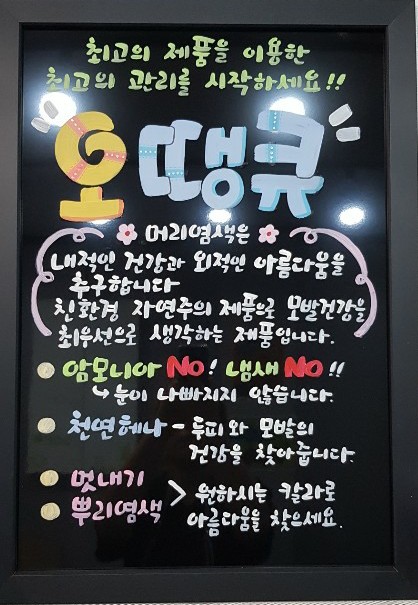 최고의 제품을 이용한
최고의 관리를 시작하세요!!
오땡큐
머리염색은
내적인 건강과 외적인 아름다움을
추구합니다
친환경 자연주의 제품으로 모발건강을
최우선으로 생각하는 제품입니다.
암모니아 NO! 냄새 NO!!
↳ 눈이 나빠지지 않습니다.
천연헤나 - 두피와 모발의
건강을 찾아줍니다.
멋내기
뿌리염색 > 원하시는 칼라로
아름다움을 찾으세요.